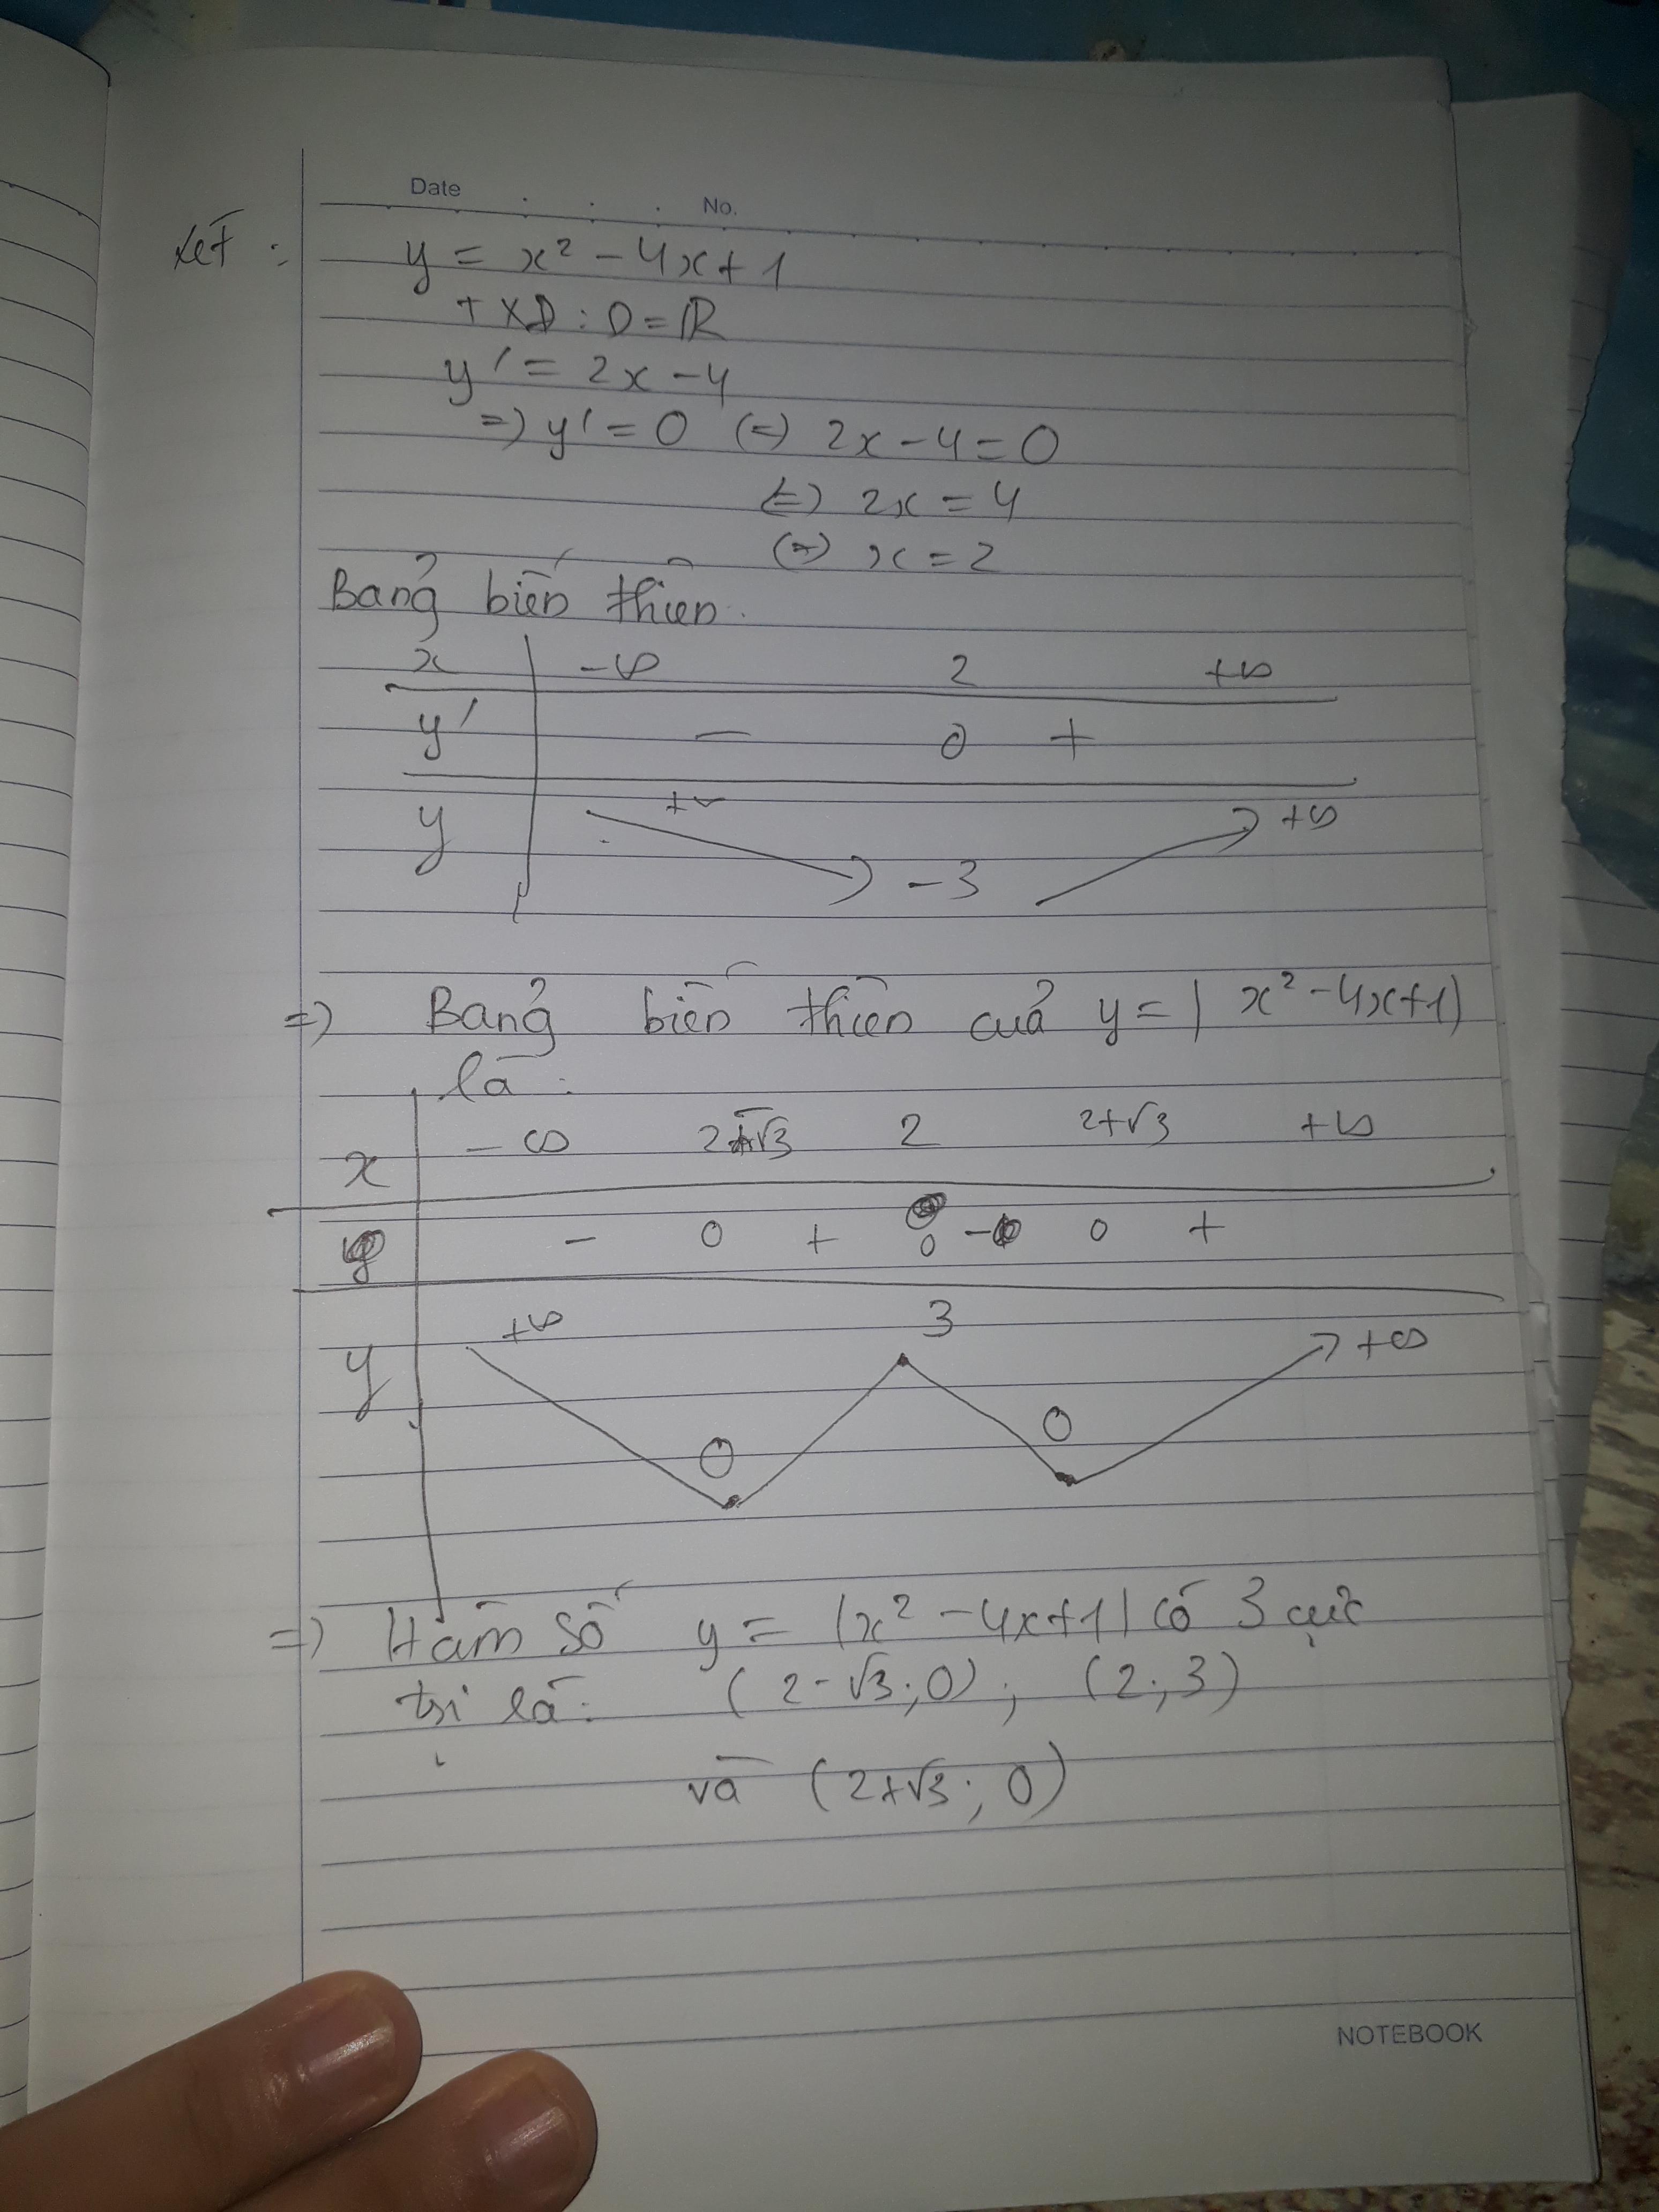 Date No.
Xét : y = x² - 4x + 1
TXD : D = ℝ
y' = 2x - 4
=) y' = 0 (=) 2x - 4 = 0
(=) 2x = 4
(=) x = 2
Bảng biến thiên.
x -∞ 2 +∞
y' - 0 +
y +∞ -3 +∞
=) Bảng biến thiên của y = | x² - 4x + 1 |
là :
x -∞ 2-√3 2 2+√3 +∞
- 0 + 0 - 0 +
+∞ 3 +∞
y 0 0
=) Hàm số y = |x² - 4x + 1| có 3 cực
trị là : (2-√3 ; 0) ; (2 ; 3)
và (2+√3 ; 0)
NOTEBOOK